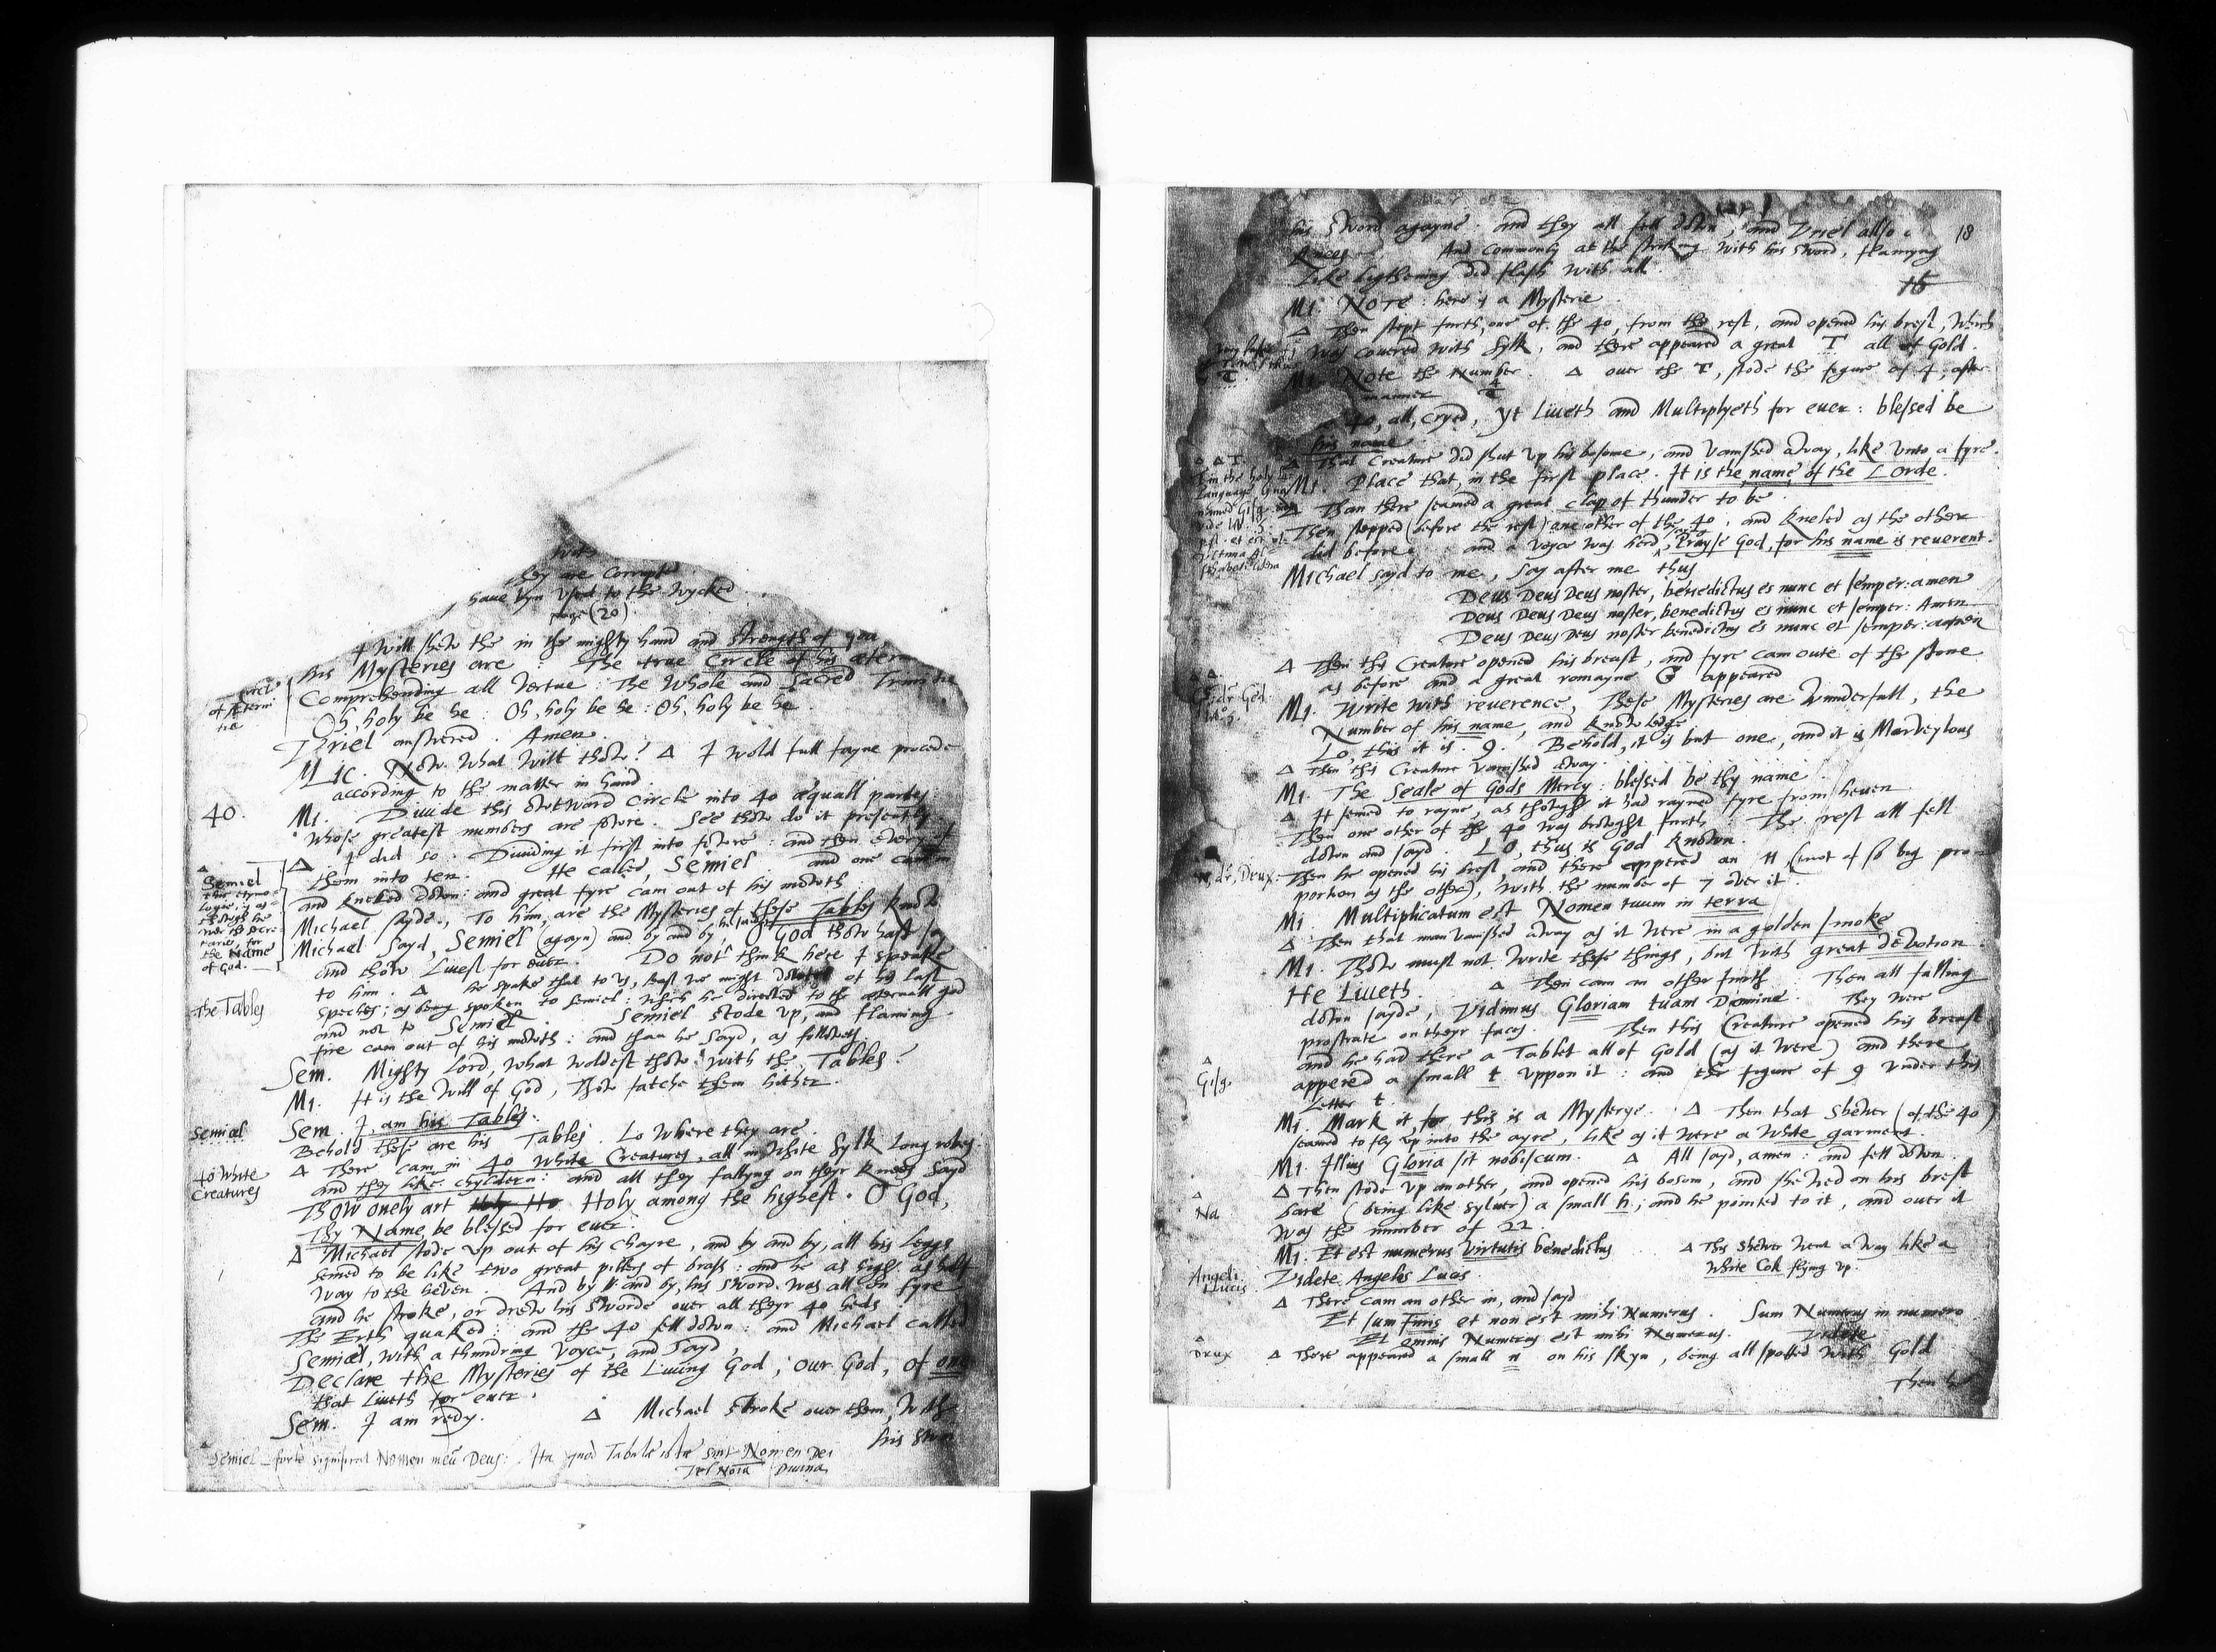 they are Corrupt
haue byn vsed to the wycked
page (20)
I will shew the in the mighty hand and strength of god
his Mysteries are : The true Circle of his æterni
Comprehending all Vertue : The whole and Sacred Trinitie
Oh, holy be he : Oh, holy be he : Oh, holy be he.
Vriel answered . Amen .
Mic. Now what wilt thow? Δ I wold full fayne procede
according to the matter in hand.
Mi. Diuide this owtward circle into 40 æquall partes
whose greatest numbers are fowre. See thow do it presently.
Δ I did so. Diuiding it first into fowre : and then euery of
them into ten. He called, Semiel and one cam in
and kneled down: and great fyre cam out of his mowth.
Michael sayde, To him, are the Mysteries of these Tables known
Michael sayd, Semiel (agayn) and by and by, he sayd, O God thow hast sayd
and thow Liuest for euer. Do not think here I speake
to him. Δ he spake that to vs, least we might dowte of his last
speches; as being spoken to Semiel: which he directed to the æternall god
and not to Semiel. Semiel stode vp, and flaming
fire cam out of his mowth: and than he sayd, as followeth
Sem. Mighty Lord, what woldest thow with the Tables?
Mi. It is the will of God, Thow fatche them hither.
Sem. I, am his Tables.
Behold these are his Tables. Lo where they are.
Δ There cam in 40 white Creatures, all in white Sylk long robes
and they like chyldern: and all they fallyng on theyr knees sayd
Thow onely art Holy Ho Holy among the highest. O God,
Thy Name be blessed for euer.
Δ Michael stode vp out of his chayre, and by and by, all his leggs
semed to be like two great pillers of brass: and he as high as half
way to the heven. And by and by, his sword was all on fyre
and he stroke, or drew his sworde ouer all theyr 40 heds.
The Erth quaked: and the 40 fell down: and Michael called
Semiel, with a thundring voyce, and sayd,
Declare the Mysteries of the Liuing God, our God, of one
that Liueth for euer.
Sem. I am redy. Δ Michael stroke ouer them, with
his swor
Semiel forte significat Nomen meū Deus: Ita quod Tabulæ istæ sunt Nomen Dei
vel Noīa Diuina
Circle
of Æterni
tie
40.
Δ
Semiel
this etymo=
logie is as
though he
wer the Secre
tarie, for
the Name
of God.
The Tables
Semiel
40 White
Creatures
18
his sword agayne: and they all fell down, and Vriel allso
knees. And commonly at the striking with his sword, flamyng
like lightening did flash with all.
Mi. NOTE: here is a Mysterie.
Δ Then stept furth, one of the 40, from the rest, and opened his brest, which
was couered with Sylk, and there appeared a great T all of Gold.
Mi. Note the Number. Δ ouer the T, stode the figure of 4, after
manner 4
T
40, all, cryed, yt Liueth and Multiplyeth for euer: blessed be
his name
Δ That Creature did shut vp his bosome, and vanished away, like vnto a fyre.
Mi. Place that, in the first place. It is the name of the Lorde.
Δ Than there seamed a great clap of thunder to be.
Then stepped (before the rest) one other of the 40, and kneled as the other
did before: and a voyce was herd, Prayse God, for his name is reuerent.
Michael sayd to me, Say after me thus
Deus Deus Deus noster, benedictus es nunc et semper: amen
Deus Deus Deus noster, benedictus es nunc et semper: Amen
Deus Deus Deus noster benedictus es nunc et semper: amen
Δ Then this Creature opened his breast, and fyre cam oute of the stone
as before and a great romayne G appeared
Mi. Write with reuerence, These Mysteries are wunderfull, the
Number of his name, and knowledge
Lo, this it is. 9. Behold, it is but one, and it is Marveylous
Δ Then this Creature vanished away.
Mi. The Seale of Gods Mercy: blessed be thy name
Δ It semed to rayne, as though it had rayned fyre from heven
Then one other of the 40 was browght furth The rest all fell
down and sayd. LO, thus is God known.
Then he opened his brest, and there appered an n, (not of so big pro
portion as the other), with the number of 7 over it.
Mi. Multiplicatum est Nomen tuum in terra
Δ Then that man vanished away as it were in a golden smoke
Mi. Thow must not write these things, but with great devotion.
He Liueth. Δ Then cam an other furth. Then all falling
down sayde, Vidimus Gloriam tuam Domine. They were
prostrate on theyr faces. Then this Creature opened his breast
and he had there a Tablet all of Gold (as it were) and there
appered a small t vppon it: and the figure of 9 vnder this
Letter t.
Mi. Mark it, for this is a Mysterye. Δ Then that Shewer (of the 40)
seamed to fly vp into the ayre, like as it were a white garment.
Mi. Illius Gloria sit nobiscum. Δ All sayd, amen: and fell down.
Δ Then stode vp another, and opened his bosom, and shewed on his brest
bare (being like sylver) a small h; and he pointed to it, and over it
was the number of 22.
Mi. Et est numerus virtutis benedictus Δ This Shewer went away like a
white Cok flying vp.
Videte Angelos Lucis.
Δ There cam an other in, and sayd
Et sum Finis et non est mihi Numerus. Sum Numerus in numero
Et omnis Numerus est mihi Numerus. Videte
Δ There appeared a small n on his skyn, being all spotted with Gold
Then he
Δ
Gisg.
Δ
Na
Angeli
Lucis.
Δ
Drux